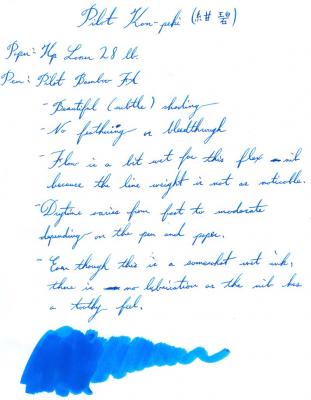 Pilot Kon-peki (紺碧)
Paper: Hp Laser 28 lb.
Pen: Pilot Bamboo FA
- Beautiful (subtle) shading
- No feathering or bleedthrough
- Flow is a bit wet for this flex nib
because the line weight is not as noticable.
- Drytime varies from fast to moderate
depending on the pen and paper.
- Even though this is a somewhat wet ink,
there is no lubrication as the nib has
a toothy feel.